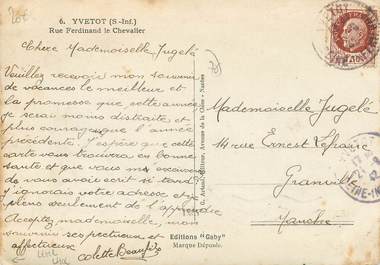 6. YVETOT (S-Inf.)
Rue Ferdinand le Chevalier
Chère Mademoiselle Jugelé
Veuillez recevoir mon souvenir
de vacances le meilleur et
la promesse que cette année
je serai moins distraite et
plus courageuse que l'année
précédente. J'espère que cette
carte vous trouvera en bonne
santé et que vous me excuserez
de vous avoir écrit si tard
J'ignorais votre adresse et
viens seulement de l'apprendre
Acceptez, mademoiselle, mon
souvenir respectueux et
affectueux
Colette
Mademoiselle Jugelé
rue Ernest Lefranc
Granville
Manche
Editions "Gaby"
Marque Déposée.